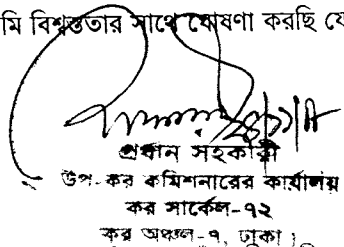 মি বিশ্বস্ততার সাথে ঘোষণা করছি যে
প্রধান সহকারী
উপ-কর কমিশনারের কার্যালয়
কর সার্কেল-৭২
কর অঞ্চল-৭, ঢাকা।